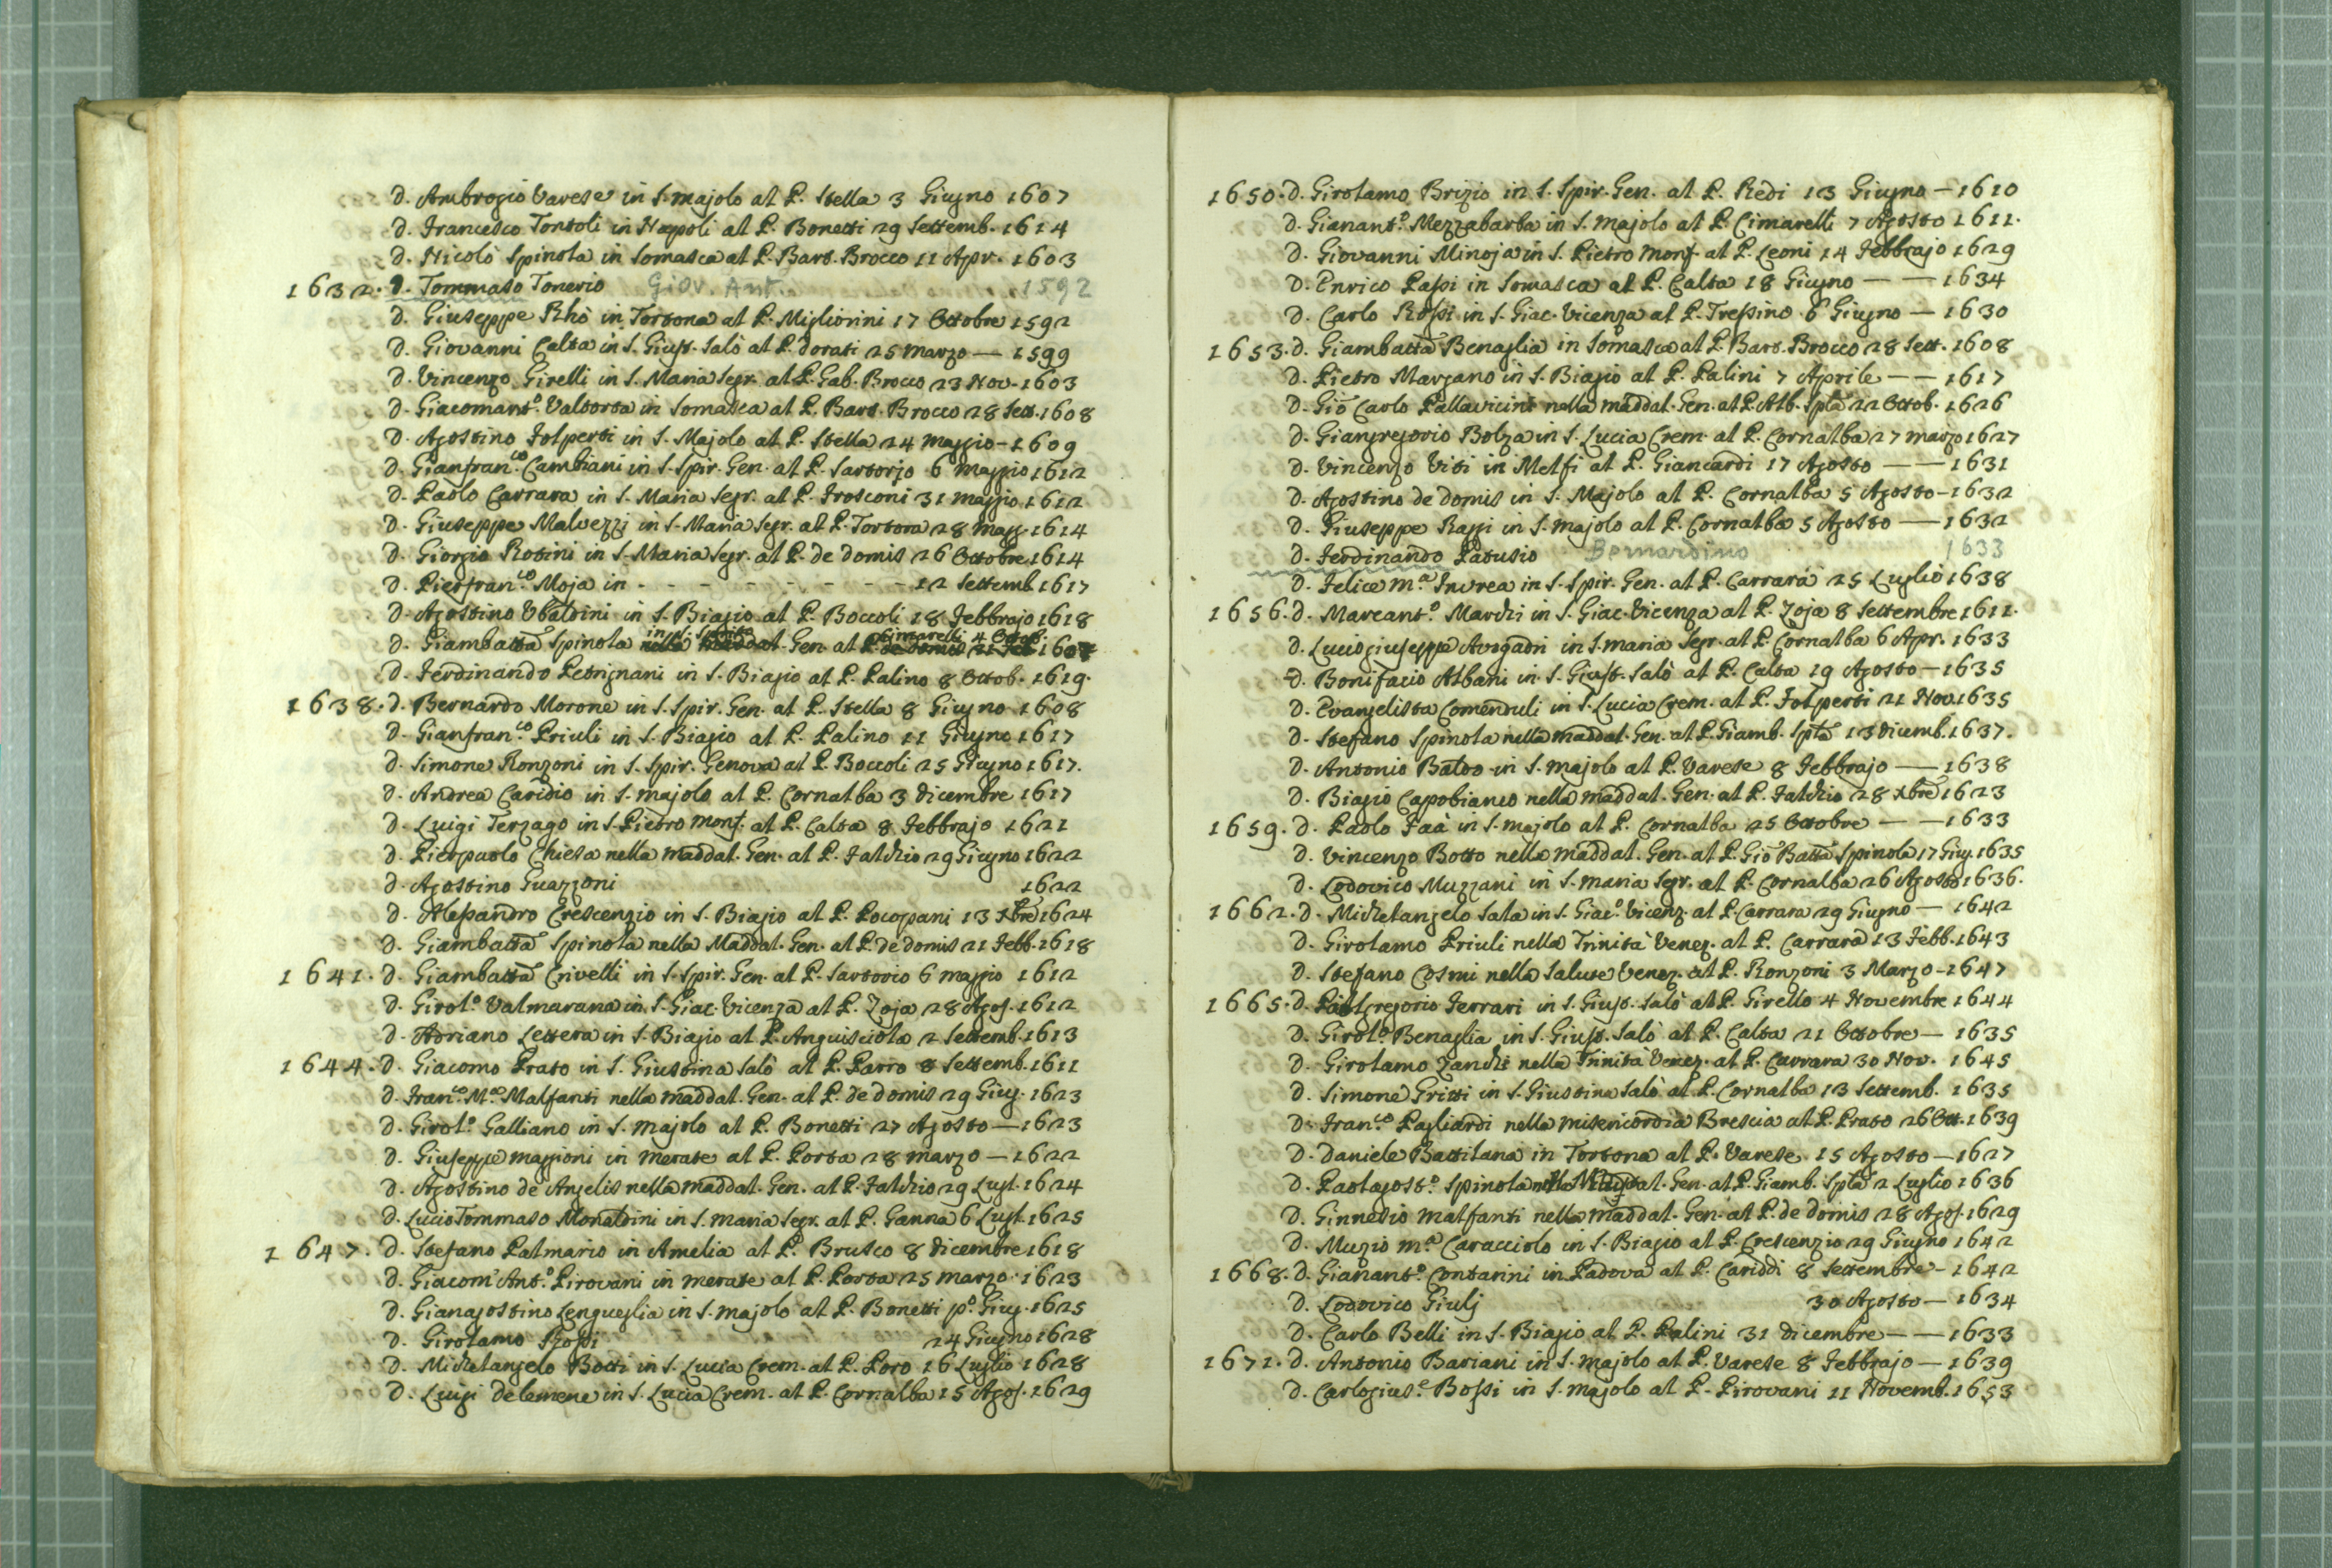 D. Ambrogio Varese in S. Majolo al P. Stella 3 Giugno 1607
D. Francesco Tontoli in Napoli al P. Bonetti 29 Settemb. 1614
D. Nicolò Spinola in Somasca al P. Bart. Brocco 11 Apr. 1603
1632. D. Tommaso Tonerio Giov. Ant. 1592
D. Giuseppe Rhò in Tortona al P. Migliorini 17 Ottobre 1592
D. Giovanni Calta in S. Giust. Salò al P. Dorati 25 Marzo — 1599
D. Vincenzo Girelli in S. Maria Segr. al P. Gab. Brocco 23 Nov. 1603
D. Giacomant.º Valtorta in Somasca al P. Bart. Brocco 28 Sett. 1608
D. Agostino Folperti in S. Majolo al P. Stella 24 Maggio - 1609
D. Gianfran.co Cambiani in S. Spir. Gen. al P. Sartorjo 6 Maggio 1612
D. Paolo Carrara in S. Maria Segr. al P. Frosconi 31 Maggio 1612
D. Giuseppe Malvezzi in S. Maria Segr. al P. Tortora 28 Magg. 1614
D. Giorgio Rotini in S. Maria Segr. al P. de Domis 26 Ottobre 1614
D. Pierfran.co Moja in - - - - - - - - 12 Settemb. 1617
D. Agostino Ubaldini in S. Biagio al P. Boccoli 18 Febbrajo 1618
D. Giambatta Spinola in S. Spirito Gen. al P. Cimarelli 4 Ottob. 1607
D. Ferdinando Petrignani in S. Biagio al P. Palino 8 Ottob. 1619.
1638. D. Bernardo Morone in S. Spir. Gen. al P. Stella 8 Giugno 1608
D. Gianfran.co Priuli in S. Biagio al P. Palino 11 Giugno 1617
D. Simone Ronzoni in S. Spir. Genova al P. Boccoli 25 Giugno 1617.
D. Andrea Caridio in S. Majolo al P. Cornalba 3 Dicembre 1617
D. Luigi Terzago in S. Pietro Monf. al P. Calta 8 Febbrajo 1621
D. Pierpaolo Chiesa nella Maddal. Gen. al P. Falchio 29 Giugno 1622
D. Agostino Guazzoni 1622
D. Alessandro Crescenzio in S. Biagio al P. Pocopani 13 Xbre 1624
D. Giambatta Spinola nella Maddal. Gen. al P. de Domis 21 Febb. 1618
1641. D. Giambatta Crivelli in S. Spir. Gen. al P. Sartorio 6 Maggio 1612
D. Girol.º Valmarana in S. Giac. Vicenza al P. Zoja 28 Agos. 1612
D. Adriano Lettera in S. Biagio al P. Anguisciola 2 Settemb. 1613
1644. D. Giacomo Prato in S. Giustina Salò al P. Parro 8 Settemb. 1611
D. Fran.co M.a Malfanti nella Maddal. Gen. al P. de Domis 29 Giug. 1623
D. Girol.º Galliano in S. Majolo al P. Bonetti 27 Agosto — 1623
D. Giuseppe Maggioni in Merate al P. Porta 28 Marzo — 1622
D. Agostino de Angelis nella Maddal. Gen. al P. Falchio 29 Lugl. 1624
D. Lucio Tommaso Monaldini in S. Maria Segr. al P. Ganna 6 Lugl. 1625
1647. D. Stefano Palmario in Amelia al P. Brusco 8 Dicembre 1618
D. Giacom'Ant.º Pirovani in Merate al P. Porta 25 Marzo. 1623
D. Gianagostino Lengueglia in S. Majolo al P. Bonetti p.º Giug. 1625
D. Girolamo Rossi 24 Giugno 1628
D. Michelangelo Botti in S. Lucia Crem. al P. Poro 16 Luglio 1628
D. Luigi Delemene in S. Lucia Crem. al P. Cornalba 15 Agos. 1629
1650. D. Girolamo Brizio in S. Spir. Gen. al P. Redi 13 Giugno — 1610
D. Gianant.º Mezzabarba in S. Majolo al P. Cimarelli 7 Agosto 1611.
D. Giovanni Minoja in S. Pietro Monf. al P. Leoni 14 Febbrajo 1629
D. Enrico Passi in Somasca al P. Calta 18 Giugno — — 1634
D. Carlo Rossi in S. Giac. Vicenza al P. Tressino 6 Giugno — 1630
1653. D. Giambatta Benaglia in Somasca al P. Bart. Brocco 28 Sett. 1608
D. Pietro Marzano in S. Biagio al P. Palini 7 Aprile — — 1617
D. Gio Carlo Pallavicini nella Maddal. Gen. al P. Alb. Spla 22 Ottob. 1626
D. Giangregorio Bolza in S. Lucia Crem. al P. Cornalba 27 Marzo 1627
D. Vincenzo Viti in Melfi al P. Giancardi 17 Agosto — — 1631
D. Agostino de Domis in S. Majolo al P. Cornalba 5 Agosto - 1632
D. Giuseppe Raggi in S. Majolo al P. Cornalba 5 Agosto — 1632
D. Ferdinando Patusio Bernardino 1633
D. Felice M.a Invrea in S. Spir. Gen. al P. Carrara 25 Luglio 1638
1656. D. Marcant.º Marchi in S. Giac. Vicenza al P. Zoja 8 Settembre 1611.
D. Luciogiuseppe Avogadri in S. Maria Segr. al P. Cornalba 6 Apr. 1633
D. Bonifacio Albani in S. Giust. Salò al P. Calta 19 Agosto — 1635
D. Evangelista Comenduli in S. Lucia Crem. al P. Folperti 21 Nov. 1635
D. Stefano Spinola nella Maddal. Gen. al P. Giamb. Spla 13 Dicemb. 1637.
D. Antonio Baldo in S. Majolo al P. Varese 8 Febbrajo — 1638
D. Biagio Capobianco nella Maddal. Gen. al P. Falchio 28 Xbre 1623
1659. D. Paolo Faà in S. Majolo al P. Cornalba 25 Ottobre — — 1633
D. Vincenzo Botto nella Maddal. Gen. al P. Gio Batta Spinola 17 Giug. 1635
D. Lodovico Muzzani in S. Maria Segr. al P. Cornalba 26 Agosto 1636.
1662. D. Michelangelo Sala in S. Giac.º Vicenz. al P. Carrara 29 Giugno — 1642
D. Girolamo Priuli nella Trinità Venez. al P. Carrara 13 Febb. 1643
D. Stefano Cosmi nella Salute Venez. al P. Ronzoni 3 Marzo - 1647
1665. D. Gregorio Ferrari in S. Giust. Salò al P. Girello 4 Novembre 1644
D. Girol.º Benaglia in S. Giust. Salò al P. Calta 21 Ottobre — 1635
D. Girolamo Zanchi nella Trinità Venez. al P. Carrara 30 Nov. 1645
D. Simone Gritti in S. Giustina Salò al P. Cornalba 13 Settemb. 1635
D. Fran.co Pagliardi nella Misericordia Brescia al P. Prato 26 Ott. 1639
D. Daniele Battilana in Tortona al P. Varese 15 Agosto — 1627
D. Paolagost.º Spinola nella Maddal. Gen. al P. Giamb. Spla 2 Luglio 1636
D. Ginnesio Malfanti nella Maddal. Gen. al P. de Domis 28 Agos. 1629
D. Muzio M.a Caracciolo in S. Biagio al P. Crescenzio 29 Giugno 1642
1668. D. Gianant.º Contarini in Padova al P. Cariddi 8 Settembre - 1642
D. Lodovico Giulj 30 Agosto — 1634
D. Carlo Belli in S. Biagio al P. Palini 31 Dicembre — — 1633
1671. D. Antonio Bariani in S. Majolo al P. Varese 8 Febbrajo — 1639
D. Carlogius.e Bossi in S. Majolo al P. Pirovani 11 Novemb. 1653